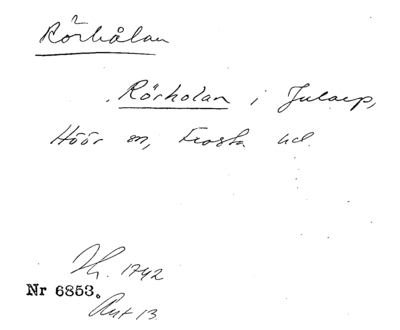 Rörhålan
Rörholan i Jularp,
Höör sn, Frosta hd.
Th. 1742
Nr 6853.
Ant 13